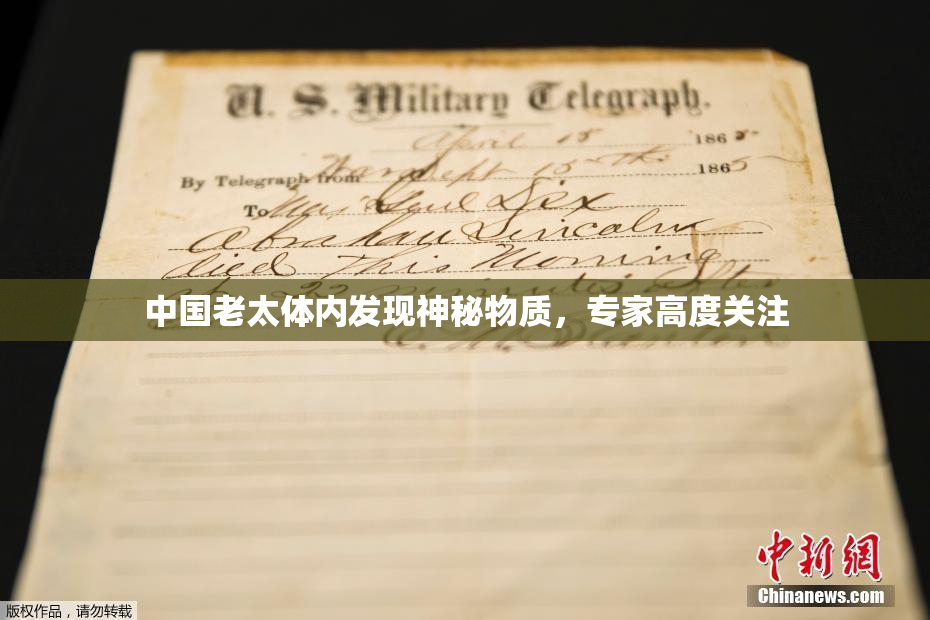 U. S. Military Telegraph.
April 15 1865
By Telegraph from War Dept 15th 1865
To Maj Genl Dix
Abraham Lincoln
died This Morning
at 22 minutes after
中国老太体内发现神秘物质，专家高度关注
E. M. Stanton
中新網
Chinanews.com
版权作品，请勿转载